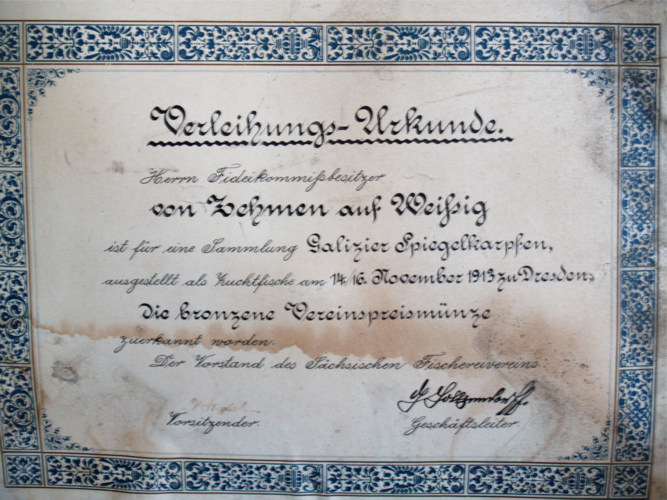 Verleihungs-Urkunde.
Herrn Fideikommißbesitzer
von Zehmen auf Weißig
ist für eine Sammlung Galizier Spiegelkarpfen,
ausgestellt als Zuchtfische am 14./16. November 1913 zu Dresden,
die bronzene Vereinspreismünze
zuerkannt worden.
Der Vorstand des Sächsischen Fischereivereins
Vorsitzender. Geschäftsleiter.